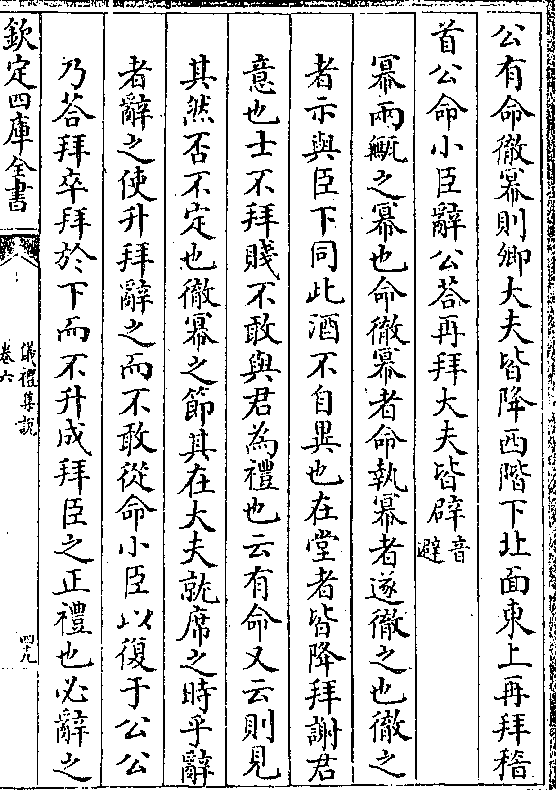 公有命徹冪則卿大夫皆降西階下北面東上再拜稽
首公命小臣辭公荅再拜大夫皆辟音避
冪兩甒之冪也命徹冪者命執冪者遂徹之也徹之
者示與臣下同此酒不自異也在堂者皆降拜謝君
意也士不拜賤不敢與君為禮也云有命又云則見
其然否不定也徹冪之節其在大夫就席之時乎辭
者辭之使升拜辭之而不敢從命小臣以復于公公
乃荅拜卒拜於下而不升成拜臣之正禮也必辭之
欽定四庫全書
儀禮集說
卷六
四九